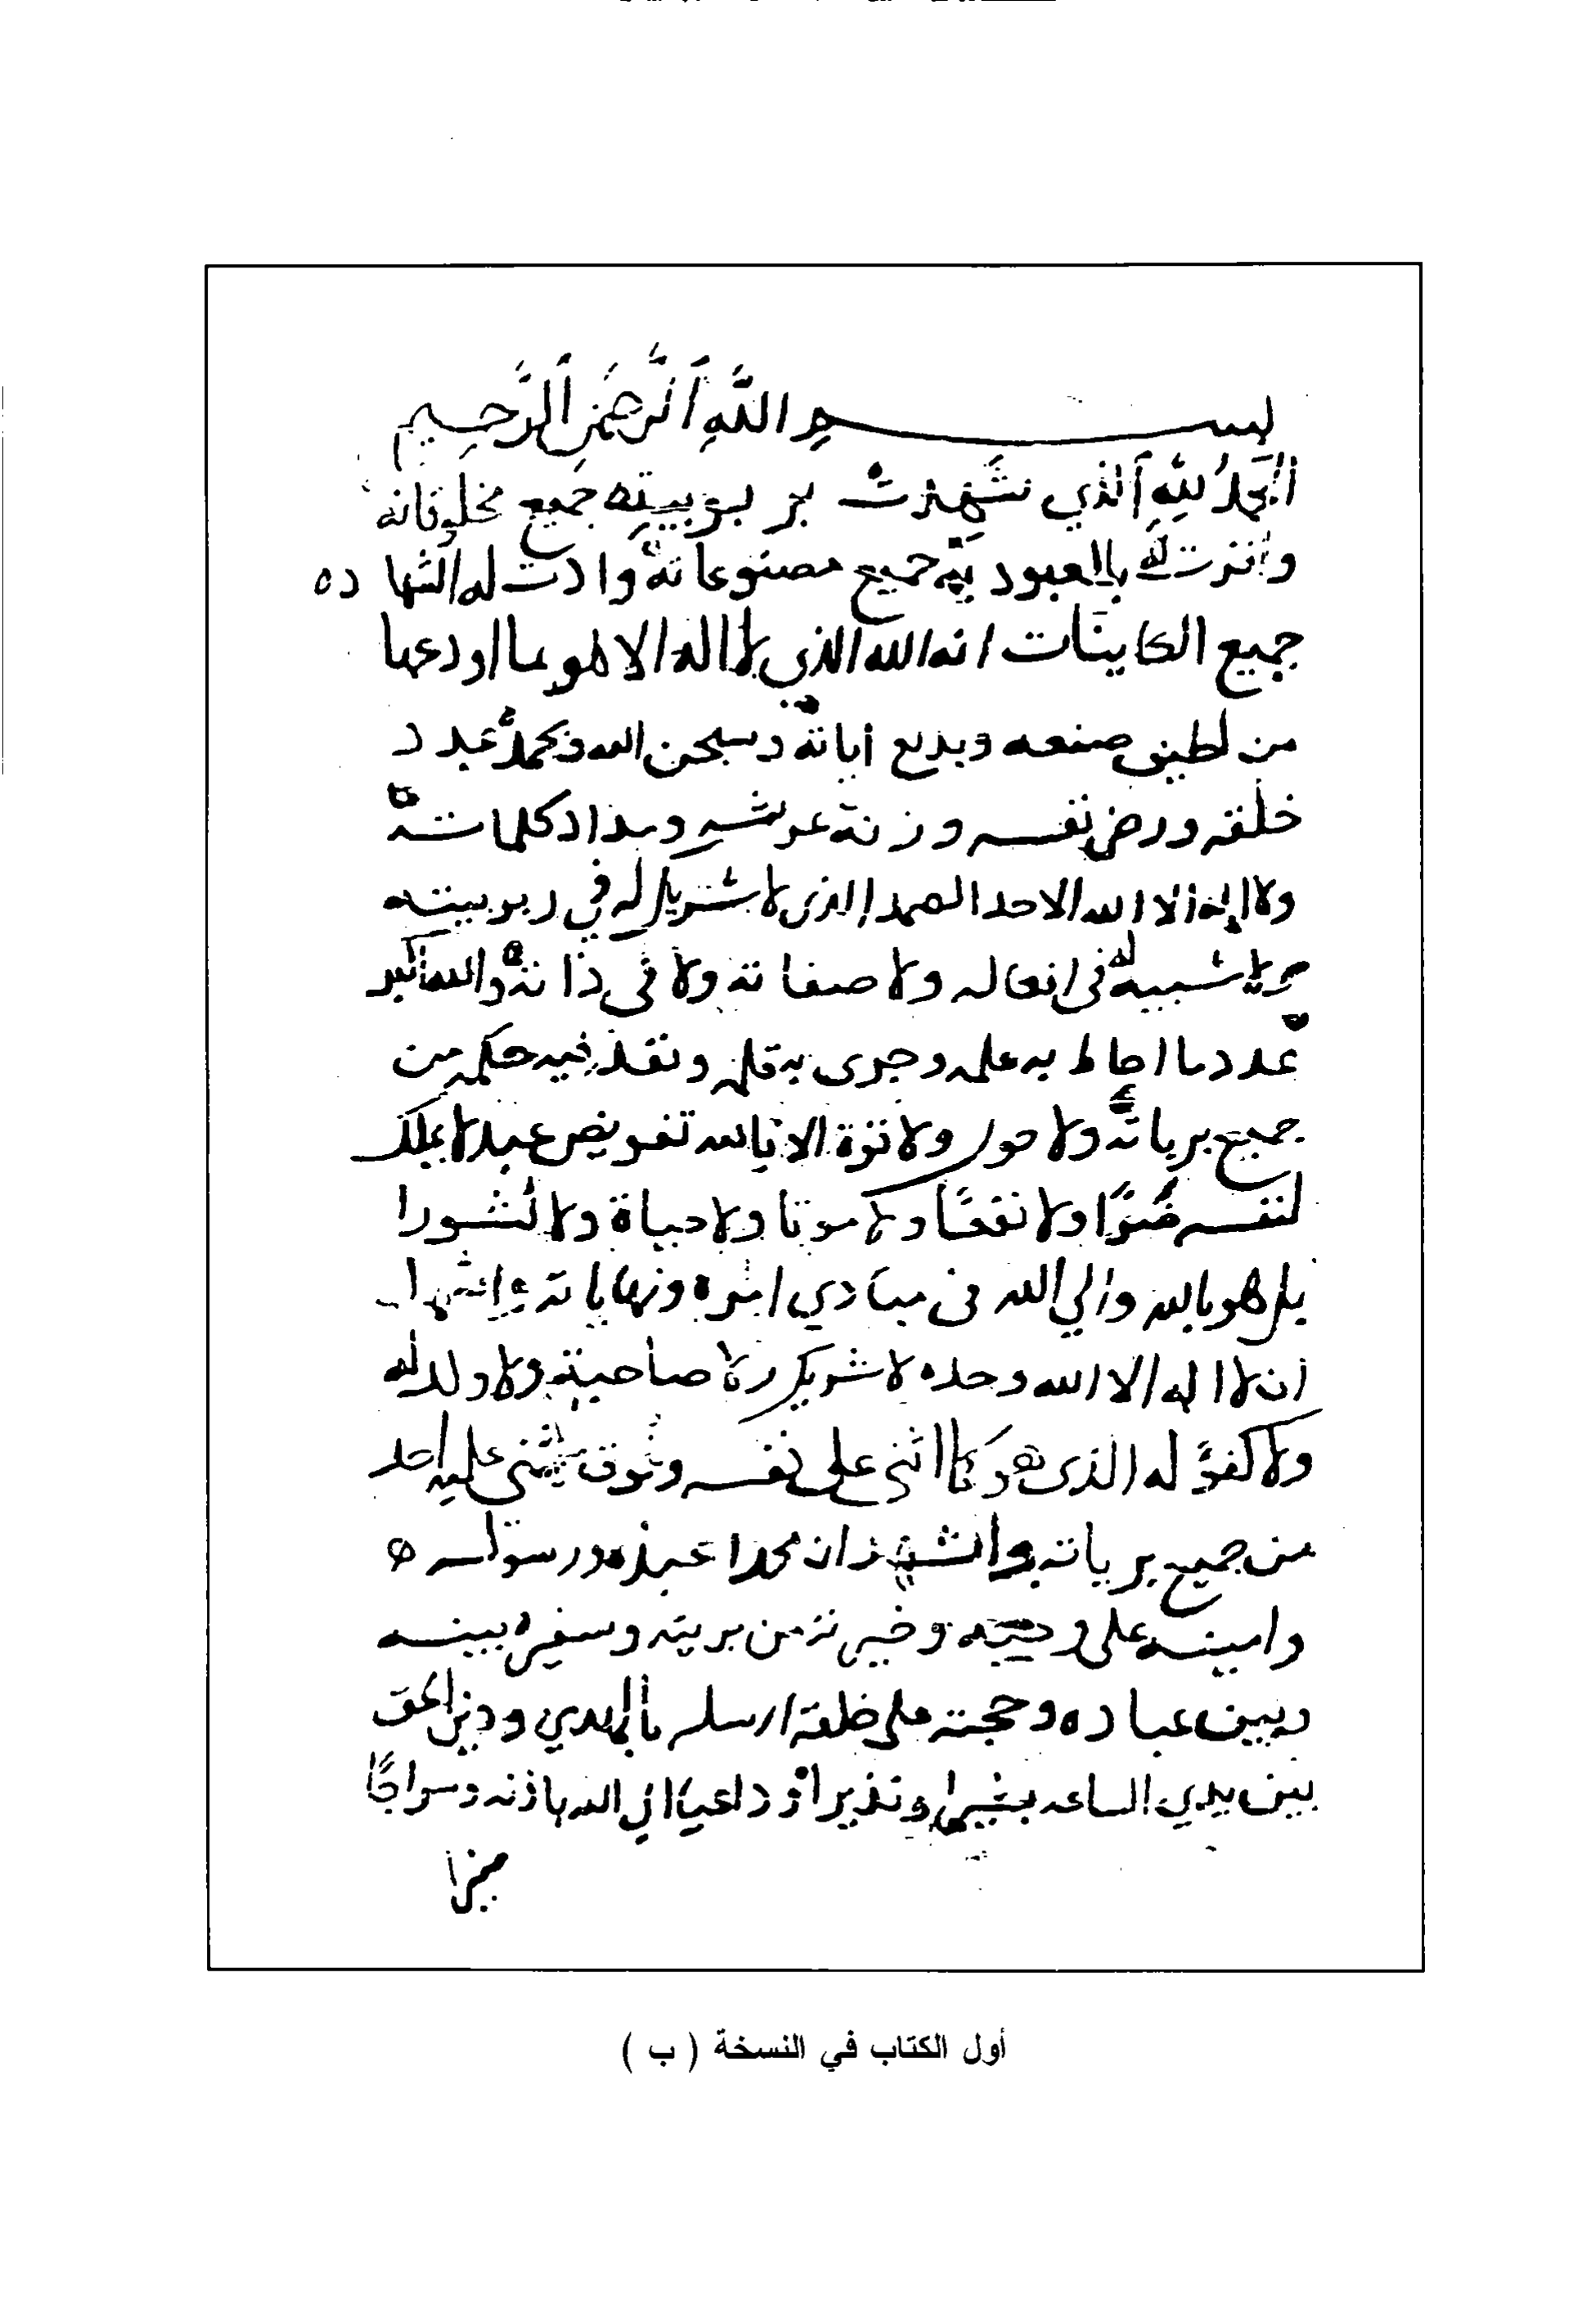 بسم اللَّهِ اَلرَّحْمَنِ اَلرَّحِيمِ
الحَمدُ لِلَّهِ اَلذي شَهِدَت بربوبيته جَميع مخلوقاته
واقرت له بالعبوديه جميع مصنوعاته وادت له الشهاده
جميع الكاينات انه الله الذي لا اله الا هو بما اودعها
من لطيف صنعه وبديع اياته وسبحن الله وبحمده عدد
خلقه ورضى نفسه وزنة عرشه ومداد كلماته
ولا اله الا الله الاحد الصمد الذي لا شريك له في ربوبيته
ولا شبيه له في افعاله ولا صفاته ولا في ذاته والله اكبر
عدد ما احاط به علمه وجرى به قلمه ونفذ فيه حكمه من
جميع برياته ولا حول ولا قوة الا بالله تفويض عبد لا يملك
لنفسه ضرًا ولا نفعًا ولا موتا ولا حياة ولا نشورا
بل هو بالله والي الله في مبادي امره ونهاياته واشهد
ان لا اله الا الله وحده لا شريك له ولا صاحبة ولا ولد له
ولا كفؤ له الذي هو كما اثنى على نفسه وفوق يثنى عليه احد
من جميع برياته واشهد ان محمدا عبده ورسوله
وامينه على وحيه وخيرته من بريته وسفيره بينه
وبين عباده وحجته على خلقه ارسله بالهدي ودين الحق
بين يدي الساعه بشيرا ونذيرا وداعيا الي الله باذنه وسراجًا
منيرا
أول الكتاب في النسخة ( ب )